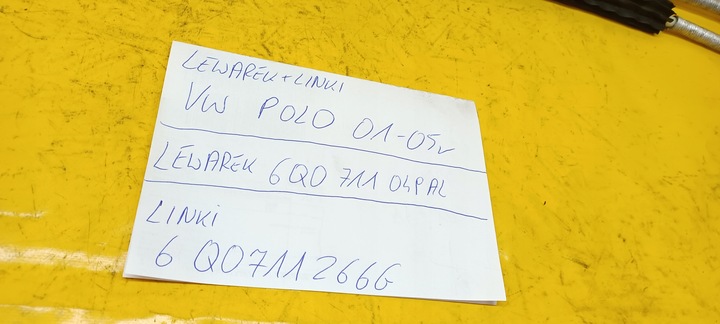 LEWAREK+LINKI
VW POLO 01-05r
LEWAREK 6Q0 711 04PAL
LINKI
6 Q0711266G